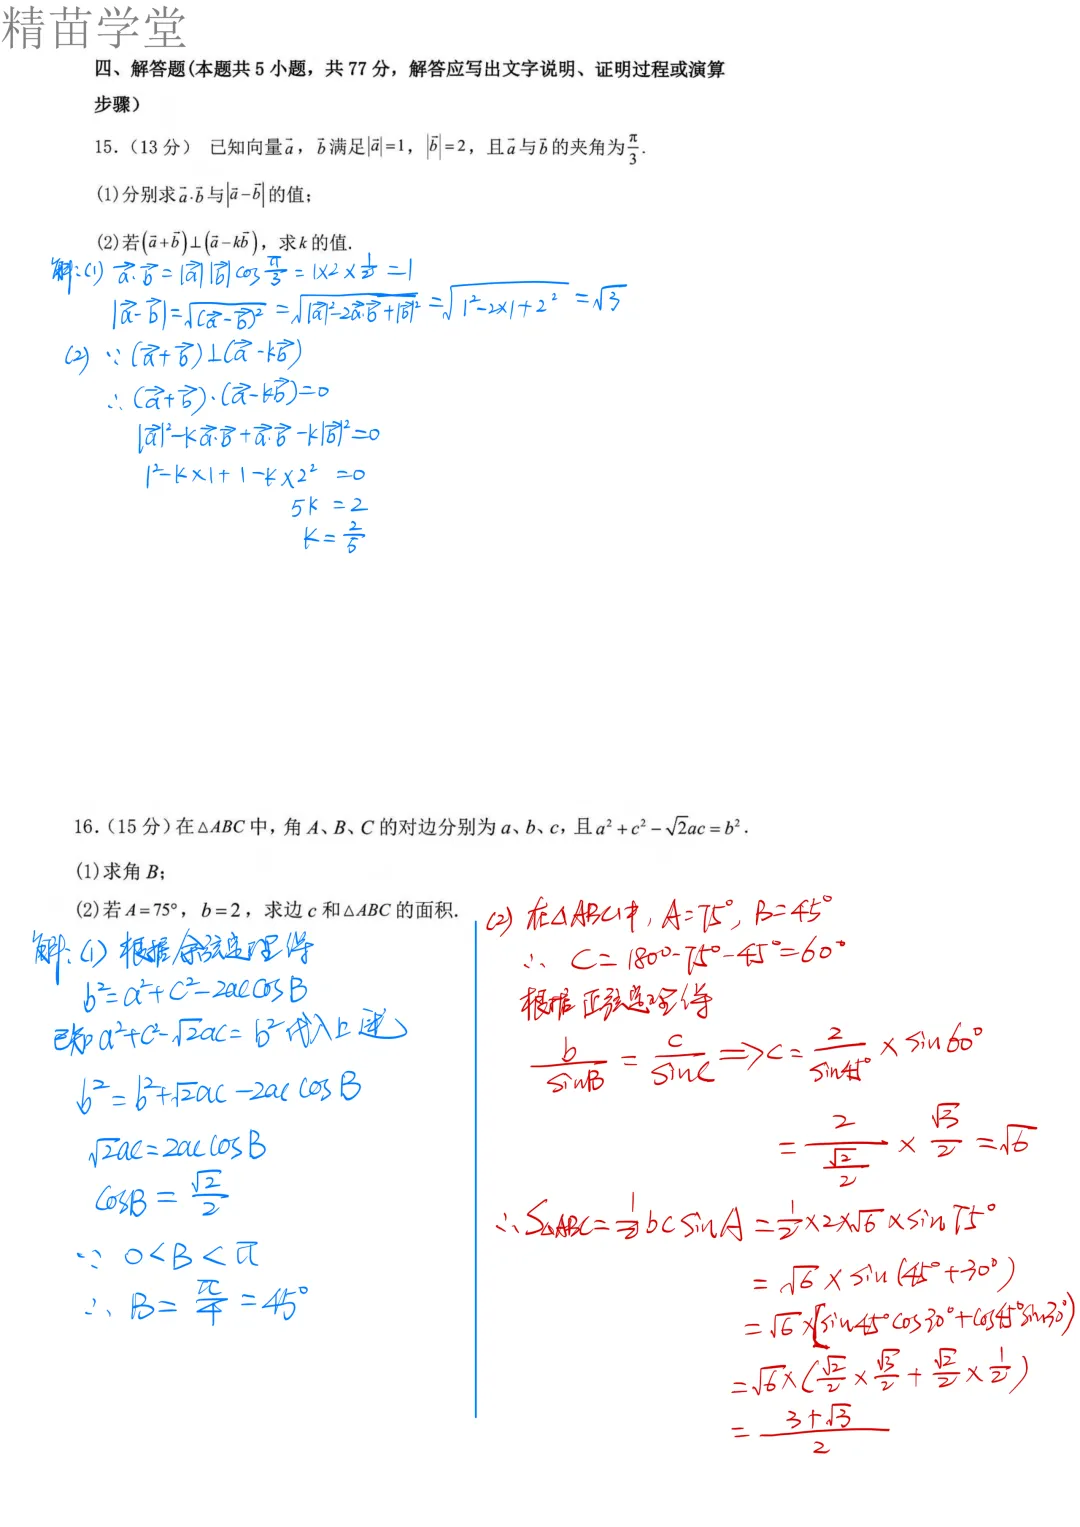 精苗学堂
四、解答题(本题共 5 小题，共 77 分，解答应写出文字说明、证明过程或演算
步骤）
15.（13 分） 已知向量a⃗，b⃗满足|a⃗|=1，|b⃗|=2，且a⃗与b⃗的夹角为π/3.
(1)分别求a⃗·b⃗与|a⃗-b⃗|的值；
(2)若(a⃗+b⃗)⊥(a⃗-kb⃗)，求k的值.
解:(1) a⃗·b⃗=|a⃗||b⃗|cosπ/3=1×2×1/2=1
|a⃗-b⃗|=√((a⃗-b⃗)²)=√(|a⃗|²-2a⃗·b⃗+|b⃗|²)=√(1²-2×1+2²)=√3
(2) ∵(a⃗+b⃗)⊥(a⃗-kb⃗)
∴(a⃗+b⃗)·(a⃗-kb⃗)=0
|a⃗|²-ka⃗·b⃗+a⃗·b⃗-k|b⃗|²=0
1²-k×1+1-k×2²=0
5k=2
k=2/5
16.（15 分）在△ABC 中，角 A、B、C 的对边分别为 a、b、c，且a²+c²-√2ac=b².
(1)求角 B；
(2)若A=75°，b=2，求边 c 和△ABC 的面积.
解:(1) 根据余弦定理得
b²=a²+c²-2accosB
已知a²+c²-√2ac=b²代入上述
b²=b²+√2ac-2accosB
√2ac=2accosB
cosB=√2/2
∵ 0<B<π
∴ B=π/4=45°
(2) 在△ABC中, A=75°, B=45°
∴ C=180°-75°-45°=60°
根据正弦定理得
b/sinB=c/sinC⇒c=2/sin45°×sin60°
=2/(√2/2)×√3/2=√6
∴S△ABC=1/2bcsinA=1/2×2×√6×sin75°
=√6×sin(45°+30°)
=√6×[sin45°cos30°+cos45°sin30°)
=√6×(√2/2×√3/2+√2/2×1/2)
=(3+√3)/2